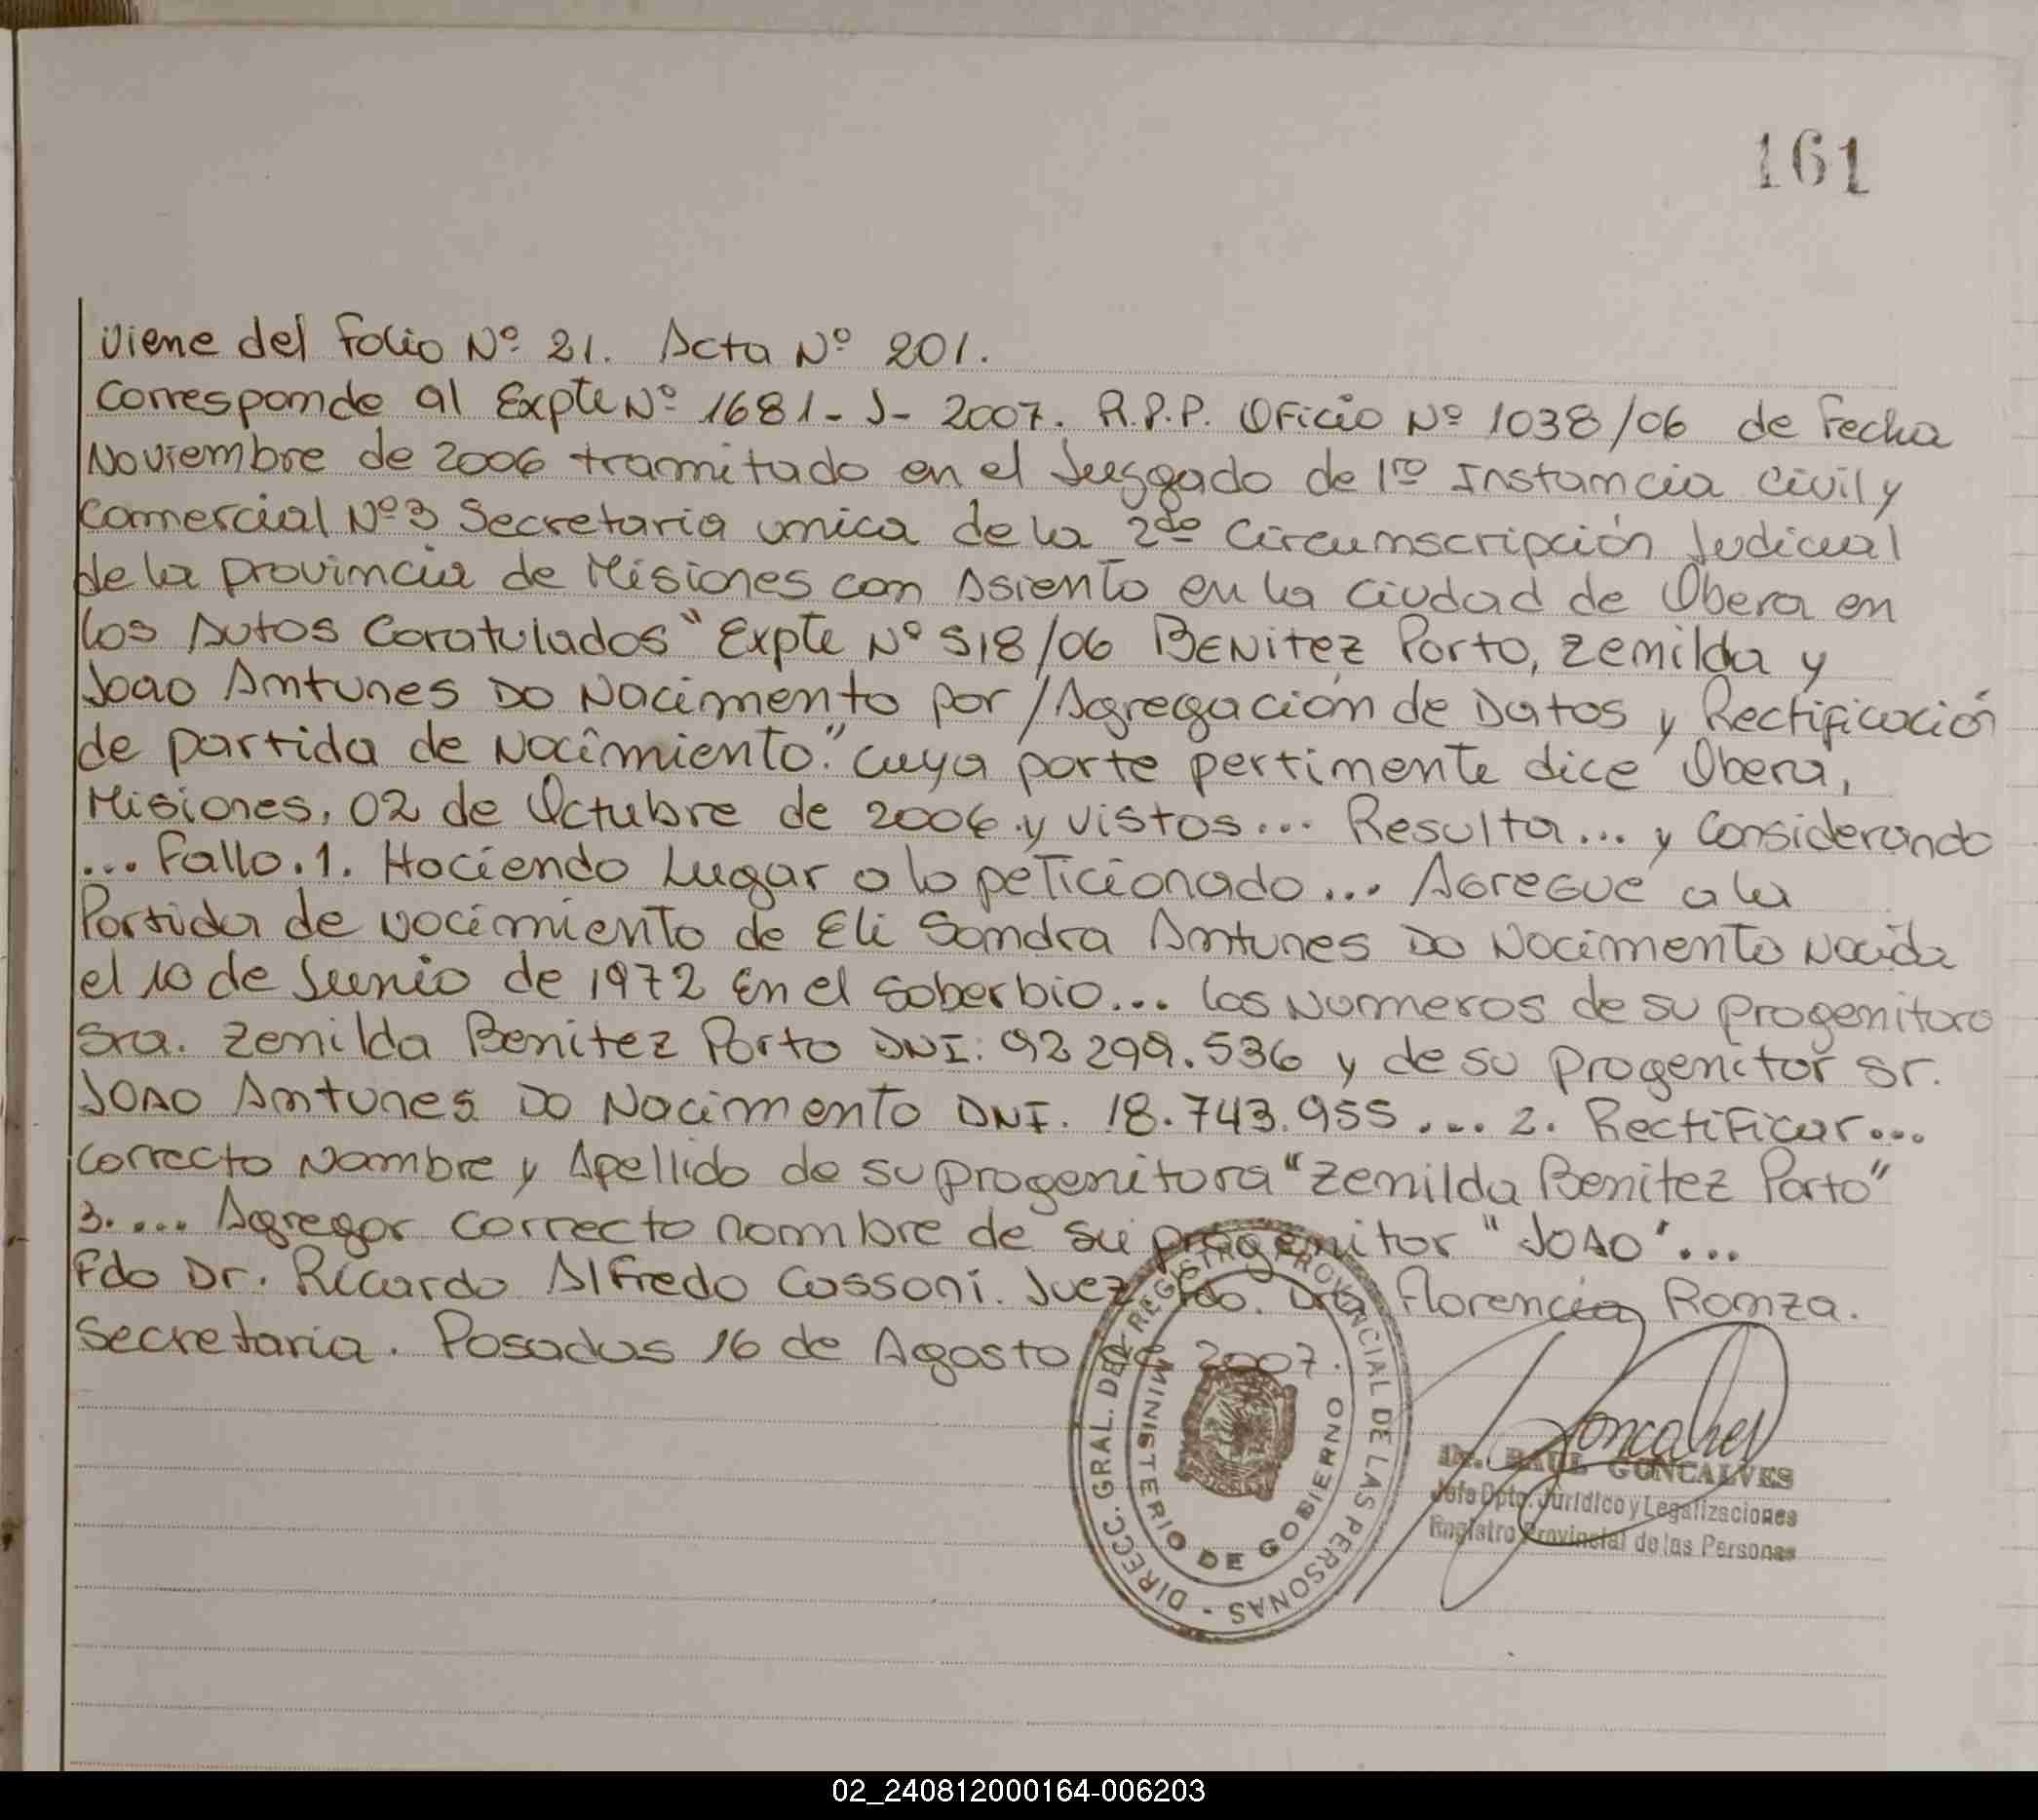 161
Viene del Folio Nº 21. Acta Nº 201.
Corresponde al Expte Nº 1681-J-2007. R.P.P. Oficio Nº 1038/06 de Fecha
Noviembre de 2006 tramitado en el Juzgado de 1ro Instancia Civil y
Comercial Nº3 Secretaria unica de la 2do Circumscripción Judicial
de la provincia de Misiones con Asiento en la Ciudad de Obera en
los Autos Caratulados "Expte Nº 518/06 BENitez Porto, Zenilda y
Joao Antunes DO Nacimento por/Agregación de Datos y Rectificación
de partida de Nacimiento." cuya parte pertimente dice Obera,
Misiones, 02 de Octubre de 2006. y vistos... Resulta... y Considerando
... Fallo. 1. Haciendo Lugar a lo peticionado... Agregue a la
Partida de nacimiento de Eli Sandra Antunes DO Nacimento Nacida
el 10 de Junio de 1972 En el Soberbio... los Numeros de su progenitora
Sra. Zenilda Benitez Porto DNI: 92 299.536 y de su progenitor Sr.
JOAO Antunes DO Nacimento DNI. 18.743.955 ... 2. Rectificar...
Correcto Nombre y Apellido de su progenitora "Zenilda Benitez Porto"
3. ... Agregar correcto nombre de su progenitor "JOAO"...
Fdo Dr. Ricardo Alfredo Cassoni. Juez Fdo. Dra Florencia Romza.
Secretaria. Posadas 16 de Agosto de 2007.
DIRECC. GRAL. DEL REGISTRO PROVINCIAL DE LAS PERSONAS -
MINISTERIO DE GOBIERNO
Goncalves
Dr. RAUL GONCALVES
Jefe Dpto. Jurídico y Legalizaciones
Registro Provincial de las Personas
02_240812000164-006203